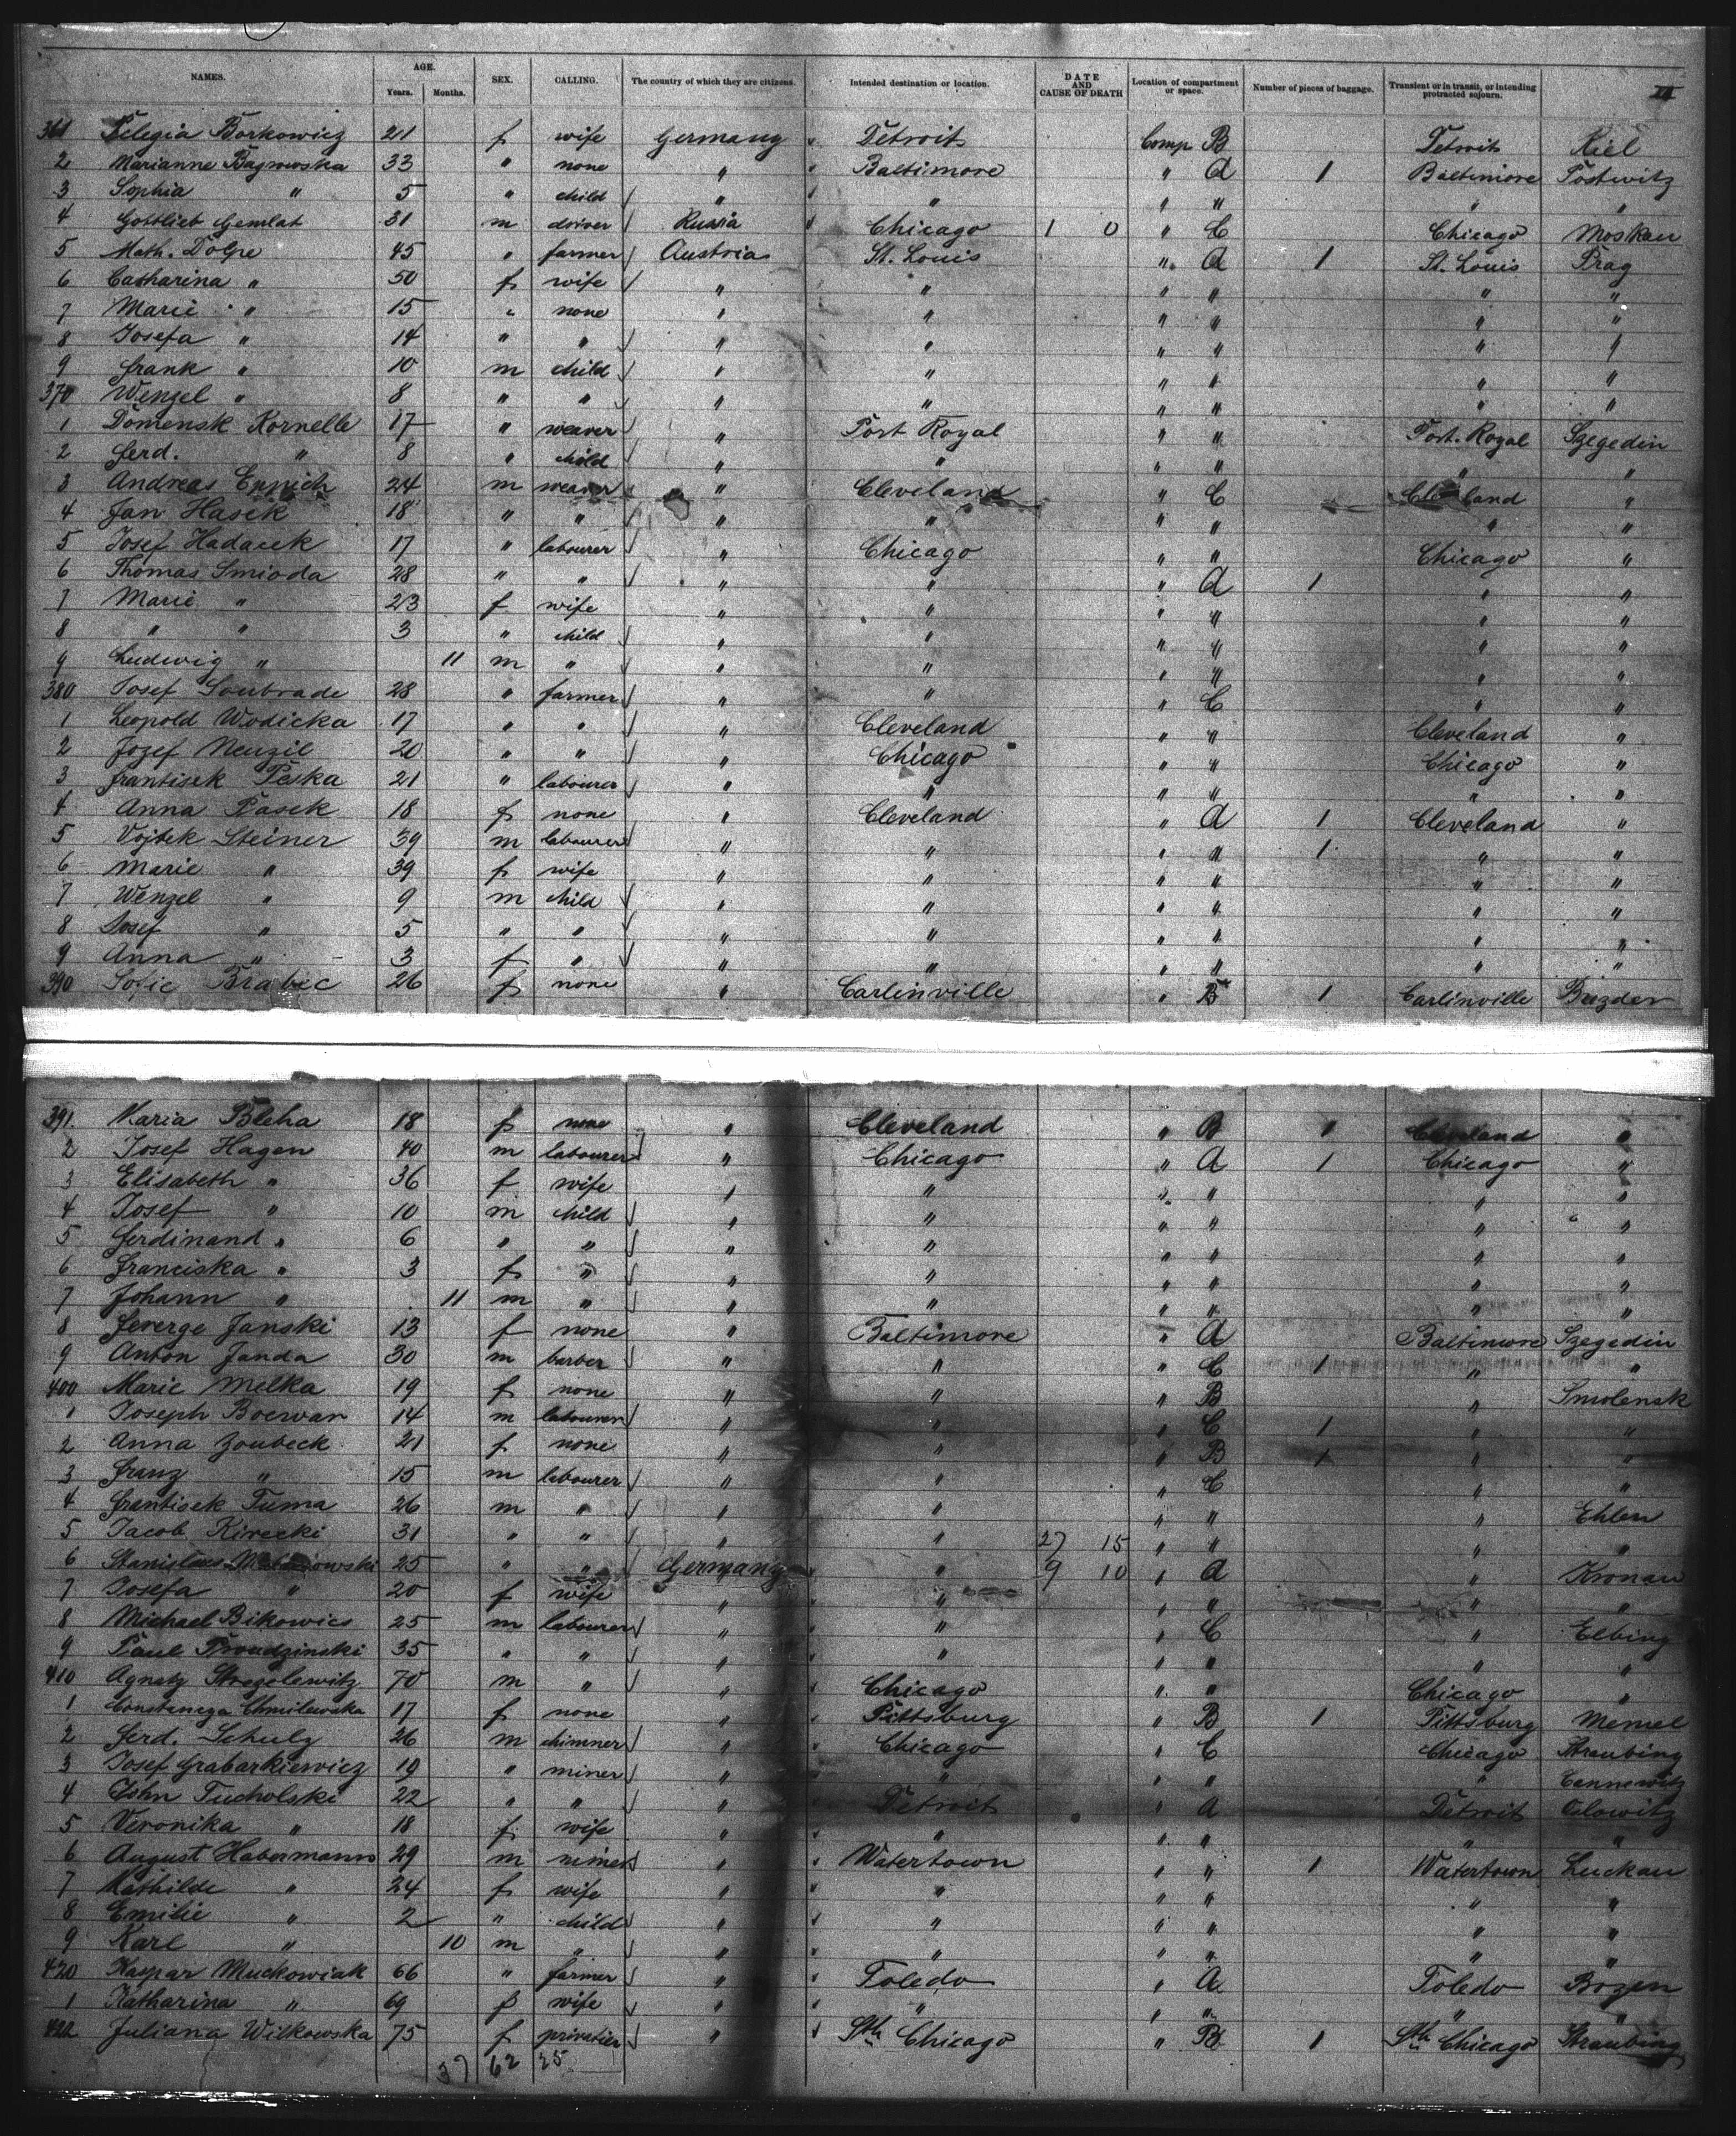 NAMES. AGE. Years. Months. SEX. CALLING. The country of which they are citizens. Intended destination or location. DATE AND CAUSE OF DEATH Location of compartment or space. Number of pieces of baggage. Transient or in transit, or intending protracted sojourn.
361 Pelegia Borkowicz 21 f wife Germany Detroit Comp B Detroit Kiel
2 Marianne Bagrowska 33 " none " Baltimore " A 1 Baltimore Postwitz
3 Sophia " 5 " child " " " " " "
4 Gottlieb Gemlat 31 m driver Russia Chicago 1 0 " C Chicago Moskau
5 Math. Dolpe 45 " farmer Austria St. Louis " A 1 St. Louis Prag
6 Catharina " 50 f wife " " " " " "
7 Marie " 15 " none " " " " " "
8 Josefa " 14 " " " " " " " "
9 Frank " 10 m child " " " " " "
370 Wenzel " 8 " " " " " " " "
1 Domensk Kornelle 17 " weaver " Port Royal " " Port. Royal Szegedin
2 Ferd. " 8 " child " " " " " "
3 Andreas Eppich 24 m weaver " Cleveland " C Cleveland "
4 Jan Hasek 18 " " " " " " " "
5 Josef Hadacek 17 " labourer " Chicago " " Chicago "
6 Thomas Smioda 28 " " " " " A 1 " "
7 Marie " 23 f wife " " " " " "
8 " " 3 " child " " " " " "
9 Ludwig " 11 m " " " " " " "
380 Josef Soubrade 28 " farmer " " " C " "
1 Leopold Wodicka 17 " " " Cleveland " " Cleveland "
2 Jozef Neuzil 20 " " " Chicago " " Chicago "
3 Frantisek Peska 21 " labourer " " " " " "
4 Anna Pasek 18 f none " Cleveland " A 1 Cleveland "
5 Vojtek Steiner 39 m labourer " " " " 1 " "
6 Marie " 39 f wife " " " " " "
7 Wenzel " 9 m child " " " " " "
8 Josef " 5 " " " " " " " "
9 Anna " 3 f " " " " " " "
390 Sofie Brabec 26 f none " Carlinville " B 1 Carlinville
391. Maria Bleha 18 f none " Cleveland " B 1 Cleveland "
2 Josef Hagen 40 m labourer " Chicago " A 1 Chicago "
3 Elisabeth " 36 f wife " " " " " "
4 Josef " 10 m child " " " " " "
5 Ferdinand " 6 " " " " " " " "
6 Franciska " 3 f " " " " " " "
7 Johann " 11 m " " " " " " "
8 Janski 13 f none " Baltimore " A Baltimore Szegedin
9 Anton Janda 30 m barber " " " C 1 " "
400 Marie Melka 19 f none " " " B " Smolensk
1 Joseph Bocwar 14 m labourer " " " C 1 " "
2 Anna Zoubeck 21 f none " " " B 1 " "
3 Franz " 15 m labourer " " " C " "
4 Frantisek Tuma 26 m " " " " " " Ehlen
5 Jacob Kirecki 31 " " " " 27 15 " " " "
6 Stanislaus 25 " " Germany " 9 10 " A " Kronau
7 Josefa " 20 f wife " " " " " "
8 Michael Bikowics 25 m labourer " " " C " Elbing
9 Paul Proudzinski 35 " " " " " " " "
410 Agnatz Stregelewitz 70 m " " Chicago " " Chicago "
1 Constancza Chmilewska 17 f none " Pittsburg " B 1 Pittsburg Memel
2 Ferd. Schulz 26 m chimner " Chicago " C Chicago Straubing
3 Josef Grabarkiewicz 19 " miner " " " " "
4 John Tucholski 22 " " " Detroit " A Detroit
5 Veronika " 18 f. wife " " " " " "
6 August Habermann 29 m " Watertown " " 1 Watertown Luckau
7 Mathilde " 24 f wife " " " " " "
8 Emilie " 2 " child " " " " " "
9 Karl " 10 m " " " " " " "
420 Kaspar Muckowiak 66 " farmer " Toledo " A Toledo Bozen
1 Katharina " 69 f wife " " " " " "
422 Juliana Wilkowska 75 f privatier " Sth Chicago " B 1 Sth Chicago Straubing
37 62 25